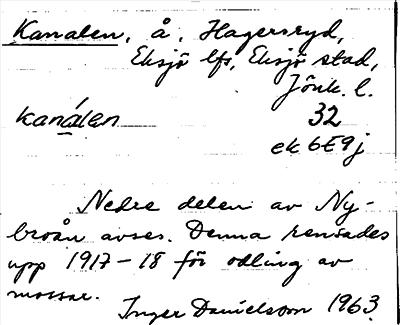 Kanalen, å, Hagersryd,
Eksjö lfs, Eksjö stad,
Jönk. l.
kanálen 32
ek 6E9j
Nedre delen av Ny-
broån avses. Denna rensades
upp 1917-18 för odling av
mossar.
Inger Danielsson 1963.